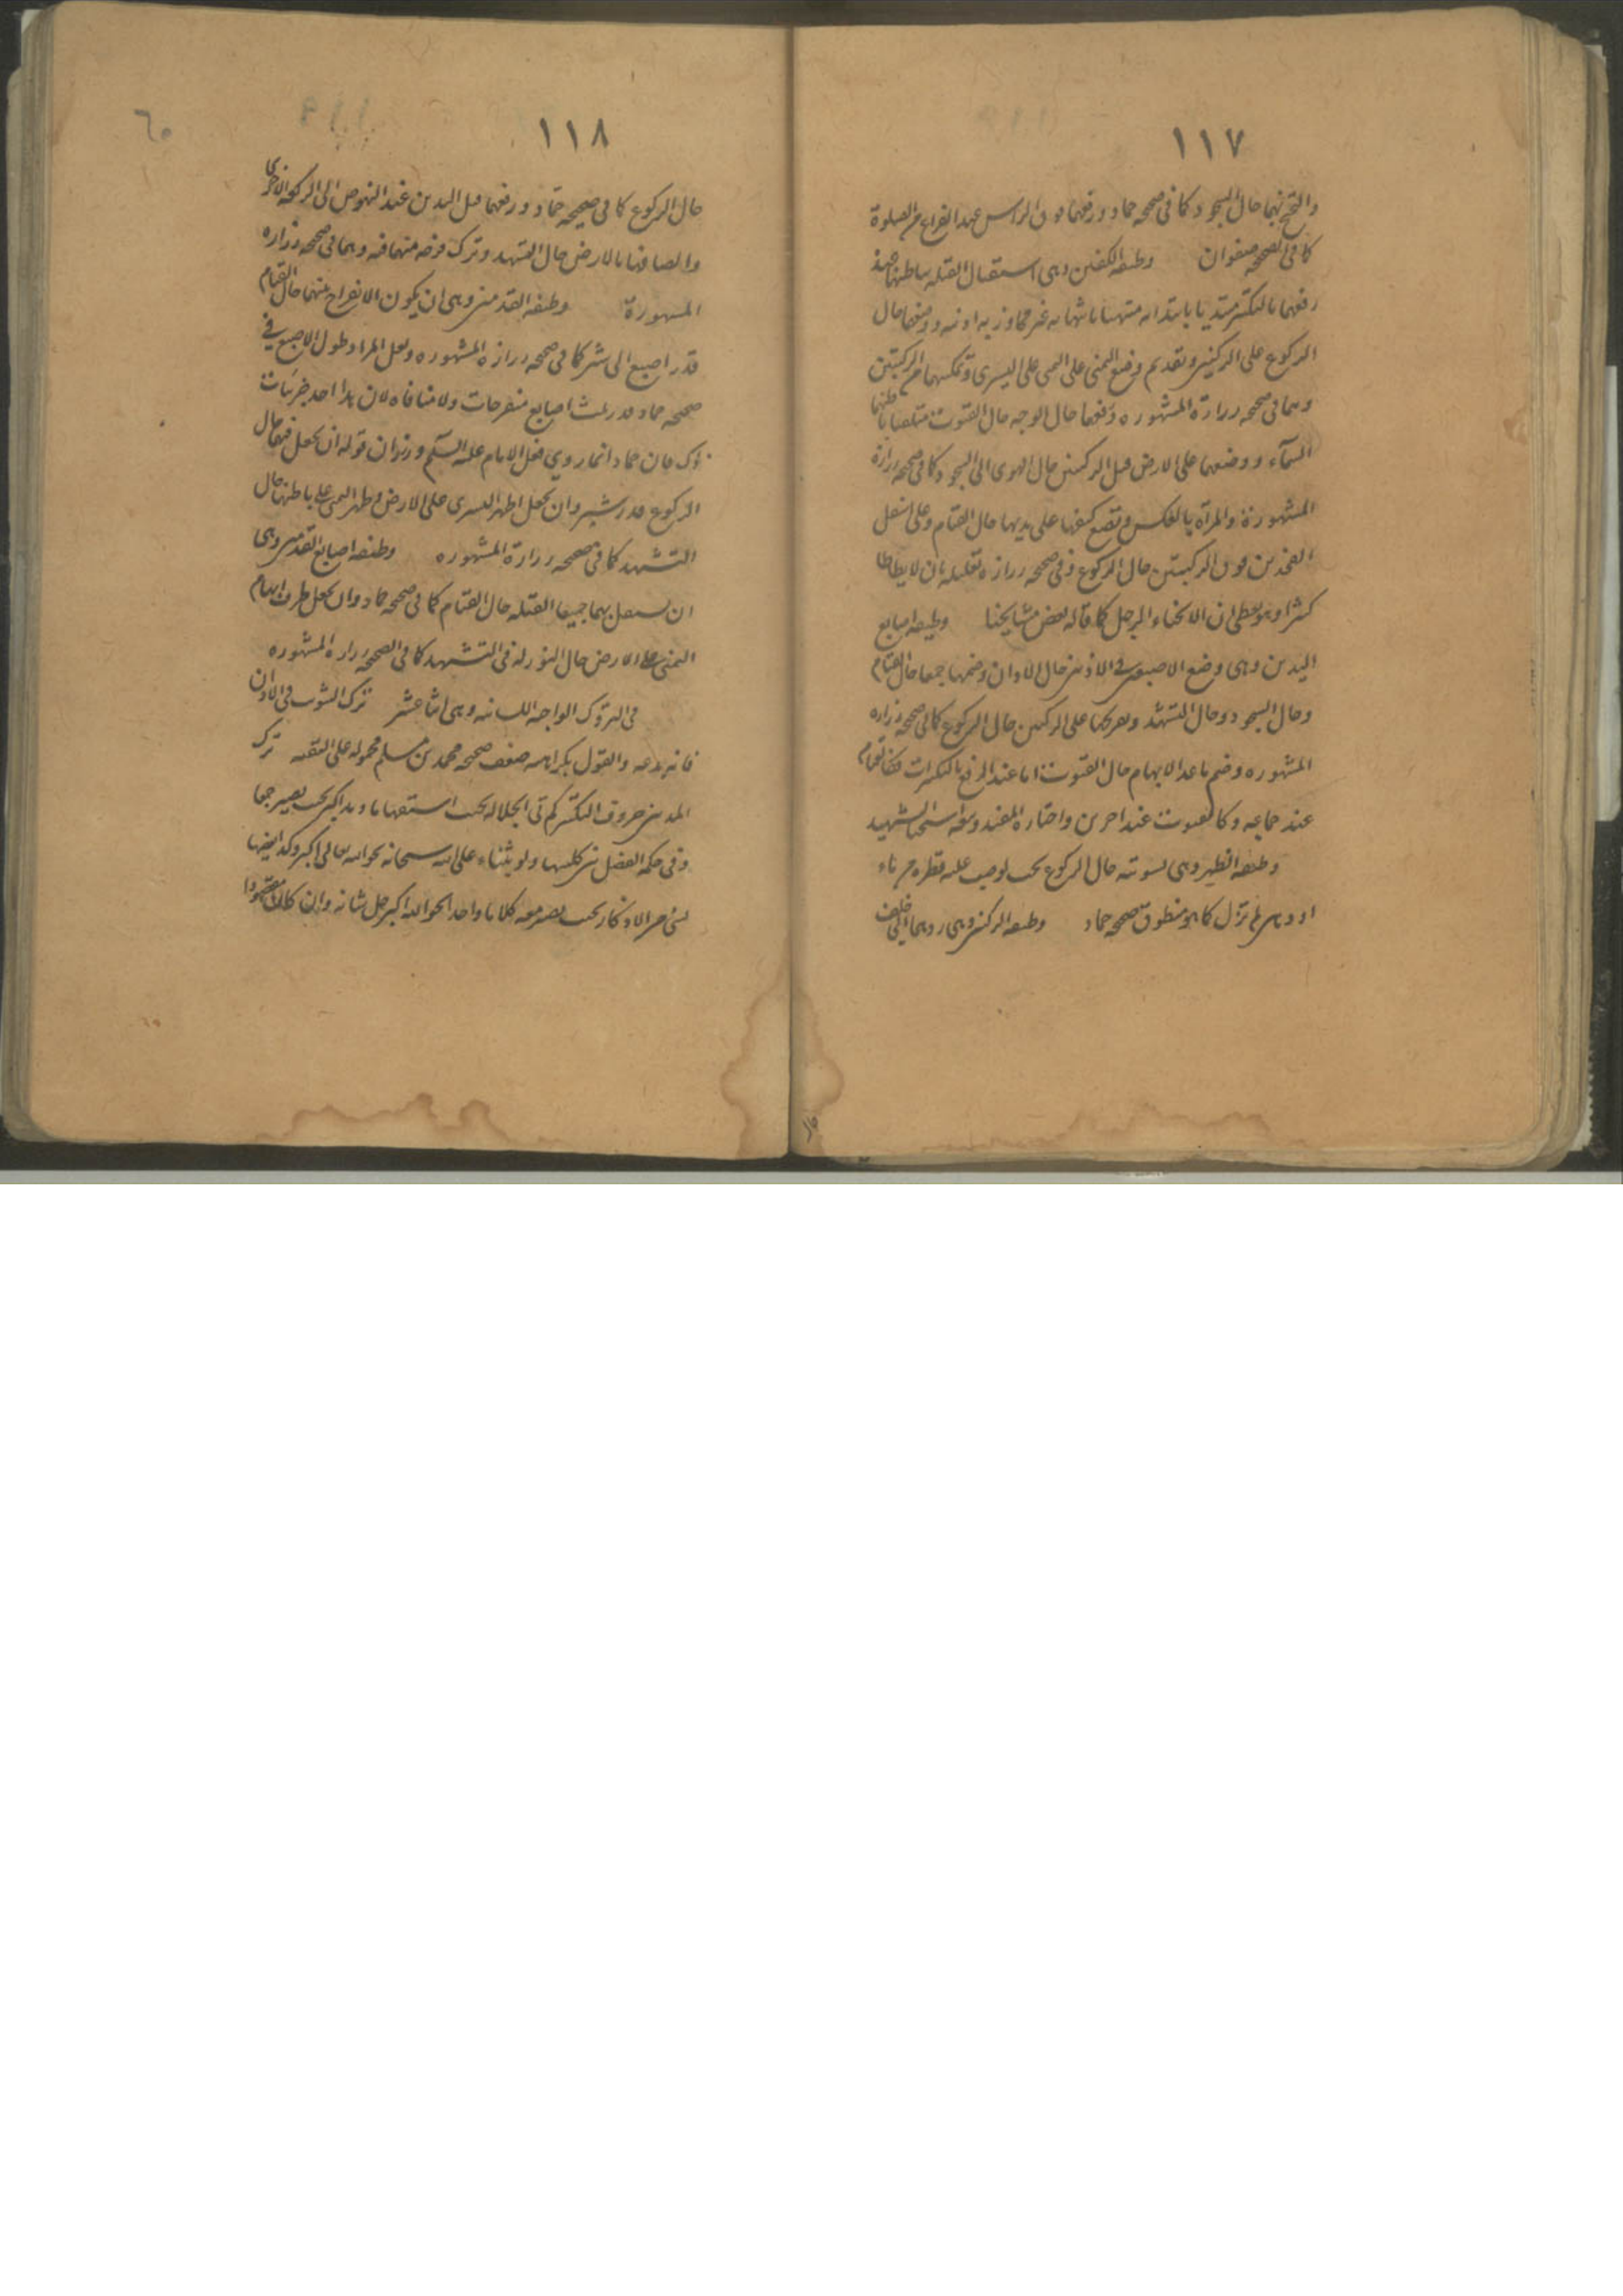 ١١٧
والتجنح بهما حال السجود كما في صحيحة حماد ورفعهما فوق الراس عند الفراغ من الصلوة
كما في صحيحة صفوان وظيفة الكفين وهي استقبال القبلة بباطنهما حين
رفعهما بالتكبير مبتديا بابتدائه منتهيا بانتهائه غير مجاوز بهما اذنيه ووضعهما حال
الركوع على الركبتين وتقديم وضع اليمنى على اليمنى على اليسرى وتمكينهما من الركبتين
وهما في صحيحة زرارة المشهوره ورفعهما حيال الوجه حال القنوت متلقيا بباطنهما
السماء ووضعهما على الارض قبل الركبتين حال الهوى الى السجود كما في صحيحة زرارة
المشهورة والمرأة بالعكس وتضع كفيها على ثدييها حال القيام وعلى اسفل
الفخذين فوق الركبتين حال الركوع وفي صحيحة زرارة تعليله بان لا يطاطا
كثيرا وهو يعطي ان الانحناء الرجل كما قاله بعض مشايخنا وظيفة اصابع
اليدين وهي وضع الاصبعين في الاذنين حال الاذان وضمها جمعا حال القيام
وحال السجود وحال التشهد وتفريجها على الركبتين حال الركوع كما في صحيحة زرارة
المشهوره وضم ما عدا الابهام حال القنوت اما عند الرفع بالتكبيرات فكالقيام
عند جماعة وكالقنوت عند اخرين واختاره المفيد وتبعه شيخنا الشهيد
وظيفة الظهر وهي تسويته حال الركوع بحيث لو صب عليه قطرة من ماء
او دهن لم تزل كما هو منطوق صحيحة حماد وظيفة الركبتين وهي ردهما الى خلف
١١٨
٦٠
حال الركوع كما في صحيحة حماد ورفعهما قبل اليدين عند النهوض الى الركعة الاخرى
والصاقهما بالارض حال التشهد وترك فرجة بينهما فيه وهما في صحيحة زرارة
المشهورة وظيفة القدمين وهي ان يكون الانفراج بينهما حال القيام
قدر اصبع الى شبر كما في صحيحة زرارة المشهوره ولعل المراد طول الاصبع في
صحيحة حماد قدر ثلث اصابع منفرجات ولا منافاه لان هذا احد جزئيات
ذلك فان حماد انما روى فعل الامام عليه السلم وزرارة قوله ان يجعل فيهما حال
الركوع قدر شبر وان يجعل ظهر اليسرى على الارض وظهر اليمنى على باطنها حال
التشهد كما في صحيحة زرارة المشهوره وظيفة اصابع القدمين وهي
ان يستقبل بهما جميعا القبلة حال القيام كما في صحيحة حماد وان يجعل طرف ابهام
اليمنى على الارض حال التورك في التشهد كما في الصحيحة زرارة المشهوره
في التروك الواجبة اللسانية وهي اثنا عشر ترك التثويب في الاذان
فانه بدعه والقول بكراهته ضعف صحيحة محمد بن مسلم محمولة على التقيه ترك
المد بين حروف التكبير كمد في الجلالة بحيث استفهاما ومد اكبر بحيث يصير جمعا
وفي حكمه الفصل بين كلمتيها ولو بثناء على الله سبحانه نحو الله تعالى اكبر وكذا تعقيبها
بشيء من الاذكار بحيث يصير معه كلاما واحدا نحو الله اكبر جل شانه وان كان مقصودا